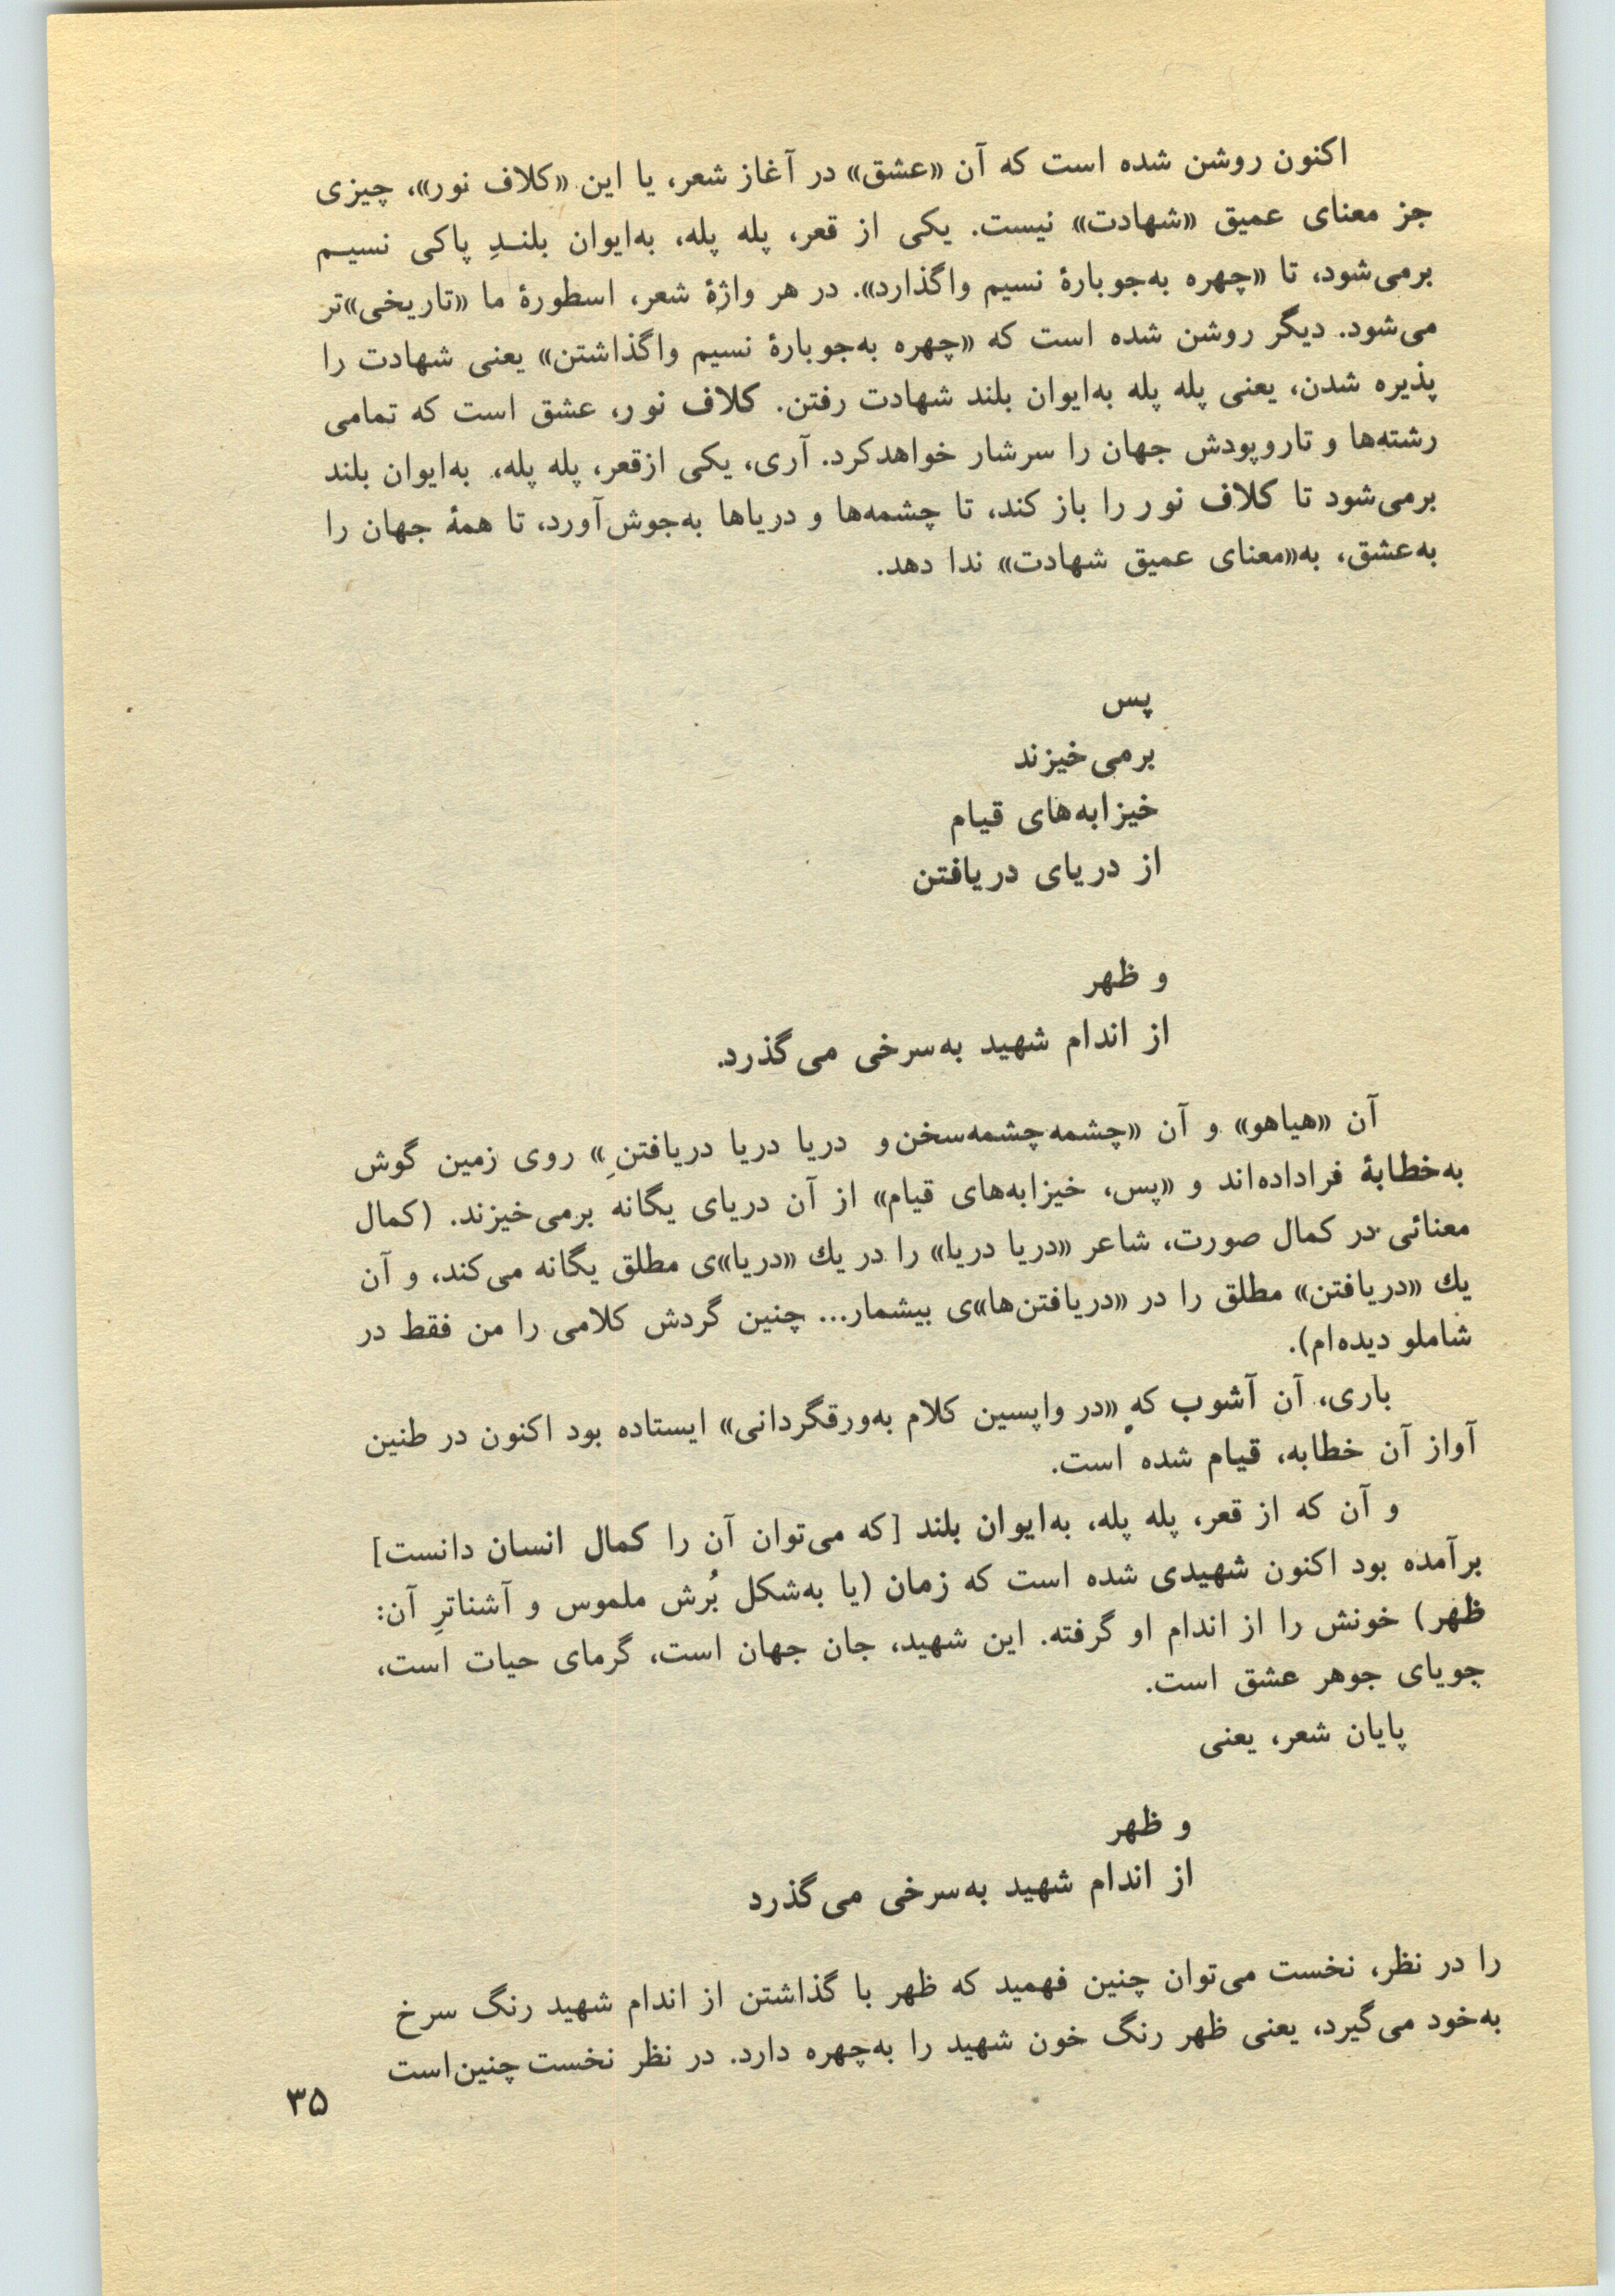 اکنون روشن شده است که آن «عشق» در آغاز شعر، یا این «کلاف نور»، چیزی
جز معنای عمیق «شهادت» نیست. یکی از قعر، پله پله، به‌ایوان بلنـدِ پاکی نسیـم
برمی‌شود، تا «چهره به‌جوبارهٔ نسیم واگذارد». در هر واژهٔ شعر، اسطورهٔ ما «تاریخی»تر
می‌شود. دیگر روشن شده است که «چهره به‌جوبارهٔ نسیم واگذاشتن» یعنی شهادت را
پذیره شدن، یعنی پله پله به‌ایوان بلند شهادت رفتن. کلاف نور، عشق است که تمامی
رشته‌ها و تاروپودش جهان را سرشار خواهدکرد. آری، یکی ازقعر، پله پله، به‌ایوان بلند
برمی‌شود تا کلاف نور را باز کند، تا چشمه‌ها و دریاها به‌جوش‌آورد، تا همهٔ جهان را
به‌عشق، به«معنای عمیق شهادت» ندا دهد.
پس
برمی‌خیزند
خیزابه‌های قیام
از دریای دریافتن
و ظهر
از اندام شهید به‌سرخی می‌گذرد.
آن «هیاهو» و آن «چشمه‌چشمه‌سخن و دریا دریا دریافتنِ» روی زمین گوش
به‌خطابهٔ فراداده‌اند و «پس، خیزابه‌های قیام» از آن دریای یگانه برمی‌خیزند. (کمال
معنائی در کمال صورت، شاعر «دریا دریا» را در یك «دریا»ی مطلق یگانه می‌کند، و آن
یك «دریافتن» مطلق را در «دریافتن‌ها»ی بیشمار... چنین گردش کلامی را من فقط در
شاملو دیده‌ام).
باری، آن آشوب که «در واپسین کلام به‌ورقگردانی» ایستاده بود اکنون در طنین
آواز آن خطابه، قیام شده است.
و آن که از قعر، پله پله، به‌ایوان بلند [که می‌توان آن را کمال انسان دانست]
برآمده بود اکنون شهیدی شده است که زمان (یا به‌شکل بُرش ملموس و آشناترِ آن:
ظهر) خونش را از اندام او گرفته. این شهید، جان جهان است، گرمای حیات است،
جویای جوهر عشق است.
پایان شعر، یعنی
و ظهر
از اندام شهید به‌سرخی می‌گذرد
را در نظر، نخست می‌توان چنین فهمید که ظهر با گذاشتن از اندام شهید رنگ سرخ
به‌خود می‌گیرد، یعنی ظهر رنگ خون شهید را به‌چهره دارد. در نظر نخست چنین‌است
۳۵